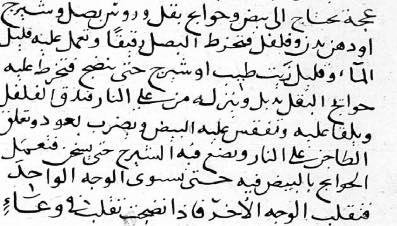 عجة تحتاج الى بيض وحوايج بقل وروس بصل وشيرج
او دهن بزر وفلفل فتخرط البصل رقيقًا وتعمل عليه قليل
الماء وقليل زيت طيب او شيرج حتى ينضج فتخرط عليه
حوايج البقل بدبل وتنزله من على النار فتدق الفلفل
ويلقا عليه وتفقس عليه البيض ويضرب بعود وتعلق
الطاجن على النار وتضع فيه الشيرج حتى يسخن فتعمل
الحوايج بالبيض فيه حتى يستوى الوجه الواحد
فتقلب الوجه الآخر فاذا نضجت تقلب في وعاءٍ